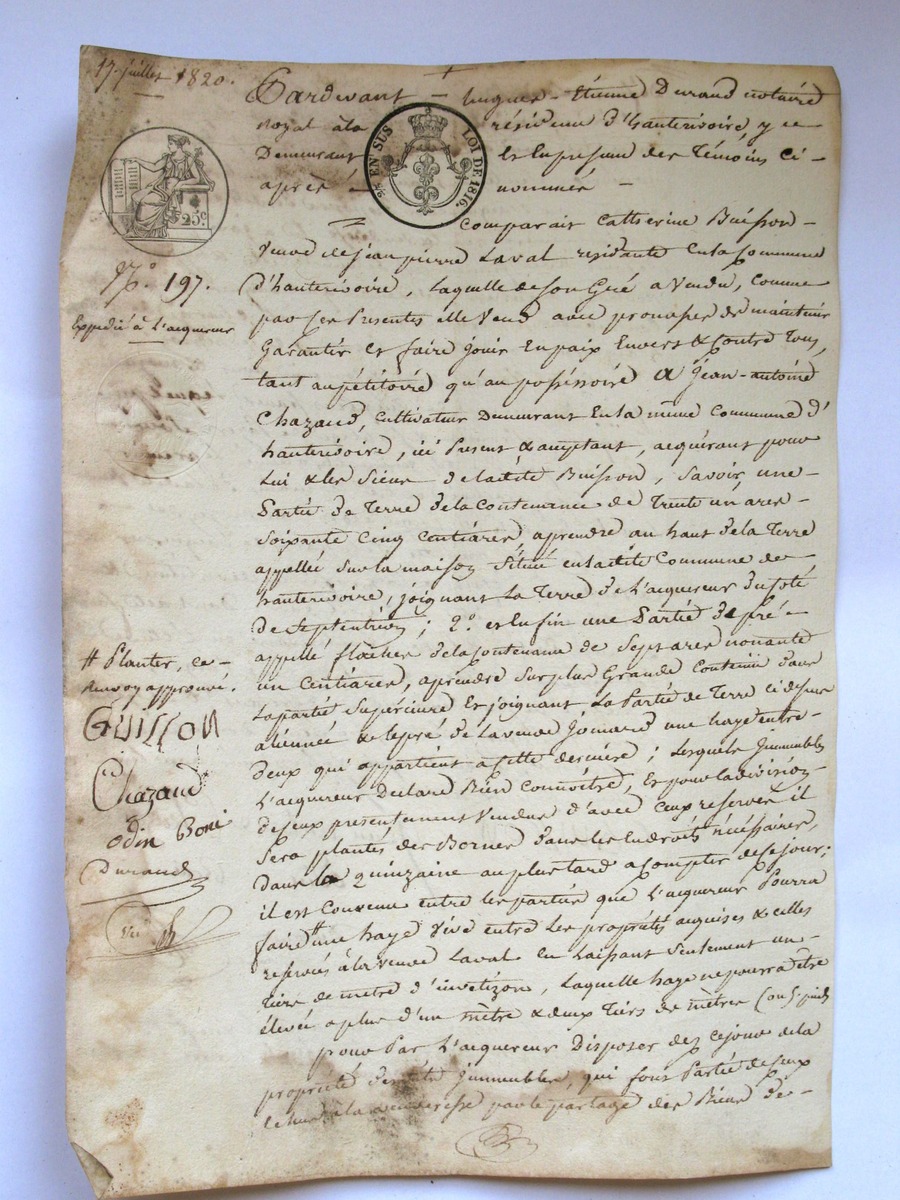 17 juillet 1820.
Pardevant hugues-Etienne Durand notaire
Royal à la résidence d'hauterivoire, y ce
Demeurant Et En presence des Témoins ci-
après nommés
2e EN SUS LOI DE 1816.
25 c.
Comparait Catherine Buisson
Veuve de jean pierre Laval residante En la Commune
N.° 197.
d'hauterivoire, Laquelle de Son Gré a Vendu, comme
Expedié à L'acquereur
par Ses Presentes elle Vend avec promesse de maintenir
Garantir et faire jouir En paix Envers & Contre Tous,
tant au pétitoire qu'au possessoire a jean-antoine
Chazaud, Cultivateur Demeurant En la même Commune d'
hauterivoire, ici Present & acceptant, acquérant pour
Lui & les Siens de ladite Buisson, Savoir, une
Partie de Terre de la Contenance de Trente un ares
Soixante Cinq Centiares, aprendre au haut de la Terre
appellée Sur la maison Située en ladite Commune de
hauterivoire, joignant La Terre de L'acquereur du Coté
de Septentrion; 2.° et Enfin une Partie de pré
appellé flacher de la Contenance de Sept ares nonante
un Centiares, aprendre Sur plus Grande Contenue dans
La partie Supérieure Et joignant La Partie de Terre ci dessus
alienée & le pré de La veuve Jomard une haye Entre-
deux qui appartient a Cette dernière; Lesquels Jmmeubles
L'acquereur Declare Bien Connoitre, Et pour la division
de Ceux presentement Vendus d'avec Ceux reservés il
Sera plantés des Bornes dans les Endroits nécessaires,
dans la quinzaine au plus tard a Compter de Ce jour;
il est Convenu entre les parties que L'acquereur Pourra
faire # une haye Vive entre les propriétés acquises & celles
reservés à la veuve Laval en Laissant Seulement un
Tiers de metre d'invetizon, Laquelle haye ne pourra être
élevée a plus d'un mètre & deux Tiers de mètres (ou 5 pieds
# Planter, ce
Renvoy approuvé.
GUILLON
Chazaud
odin Boni
Durand
pour Par L'acquereur Disposer dez ce jour de la
propriété desdits Jmmeubles, qui font Partie de Ceux
échus à la venderesse par le partage des Biens de